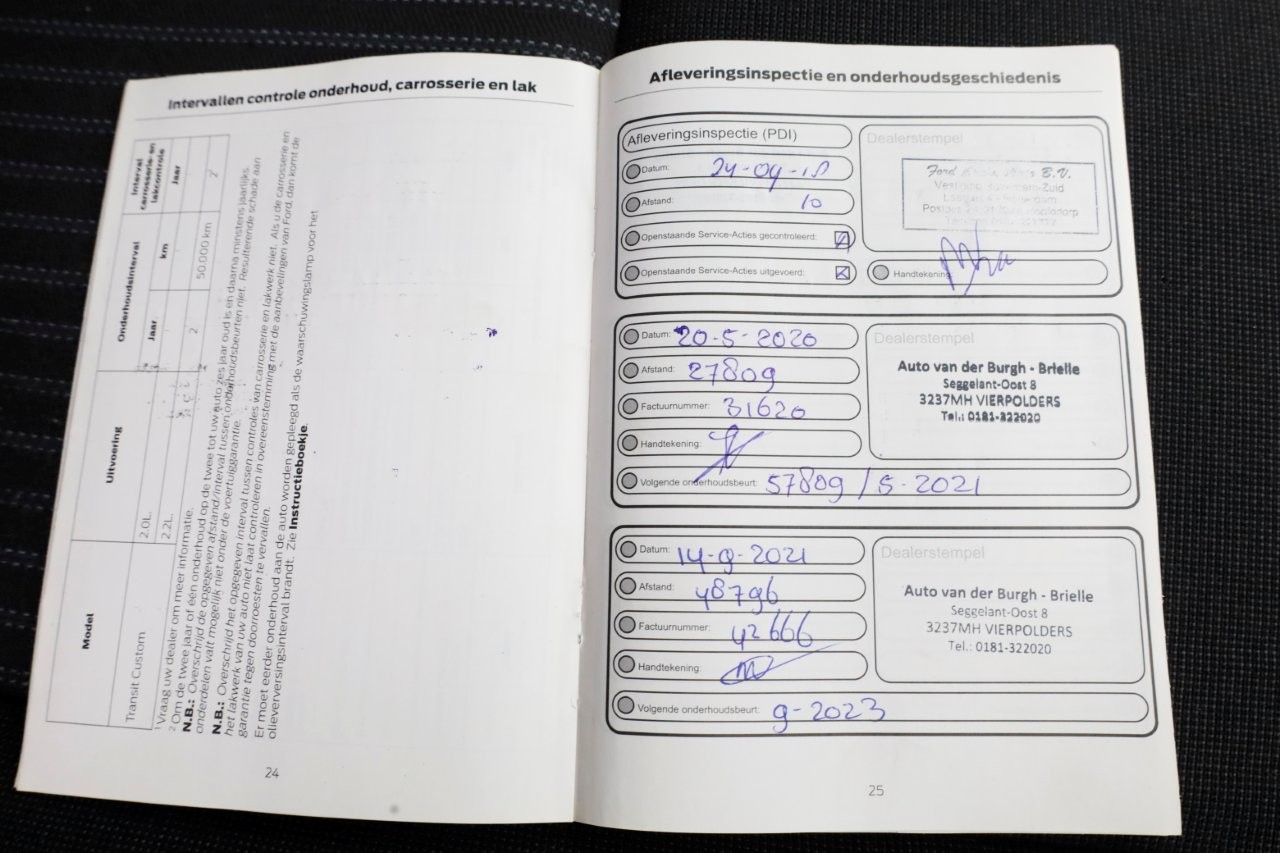 Intervallen controle onderhoud, carrosserie en lak
Model
Uitvoering
Onderhoudsinterval
Interval carrosserie- en lakcontrole
Jaar
km
Jaar
Transit Custom
2.0L
2.2L
2
50.000 km
2
Vraag uw dealer om meer informatie.
2 Om de twee jaar of één onderhoud op de twee tot uw auto zes jaar oud is en daarna minstens jaarlijks.
N.B.: Overschrijd de opgegeven afstand/interval tussen onderhoudsbeurten niet. Resulterende schade aan
onderdelen valt mogelijk niet onder de voertuiggarantie.
N.B.: Overschrijd het opgegeven interval tussen controles van carrosserie en lakwerk niet. Als u de carrosserie en
het lakwerk van uw auto niet laat controleren in overeenstemming met de aanbevelingen van Ford, dan komt de
garantie tegen doorroesten te vervallen.
Er moet eerder onderhoud aan de auto worden gepleegd als de waarschuwingslamp voor het
olieverversingsinterval brandt. Zie Instructieboekje.
24
Afleveringsinspectie en onderhoudsgeschiedenis
Afleveringsinspectie (PDI)
Datum: 24-04-18
Afstand: 10
Openstaande Service-Acties gecontroleerd:
Openstaande Service-Acties uitgevoerd:
Dealerstempel
Ford B.V.
Handtekening:
Datum: 20-5-2020
Afstand: 27809
Factuurnummer: 31620
Handtekening:
Volgende onderhoudsbeurt: 57809 / 5-2021
Dealerstempel
Auto van der Burgh - Brielle
Seggelant-Oost 8
3237MH VIERPOLDERS
Tel.: 0181-322020
Datum: 14-9-2021
Afstand: 48796
Factuurnummer: 42666
Handtekening:
Volgende onderhoudsbeurt: 9-2023
Dealerstempel
Auto van der Burgh - Brielle
Seggelant-Oost 8
3237MH VIERPOLDERS
Tel.: 0181-322020
25